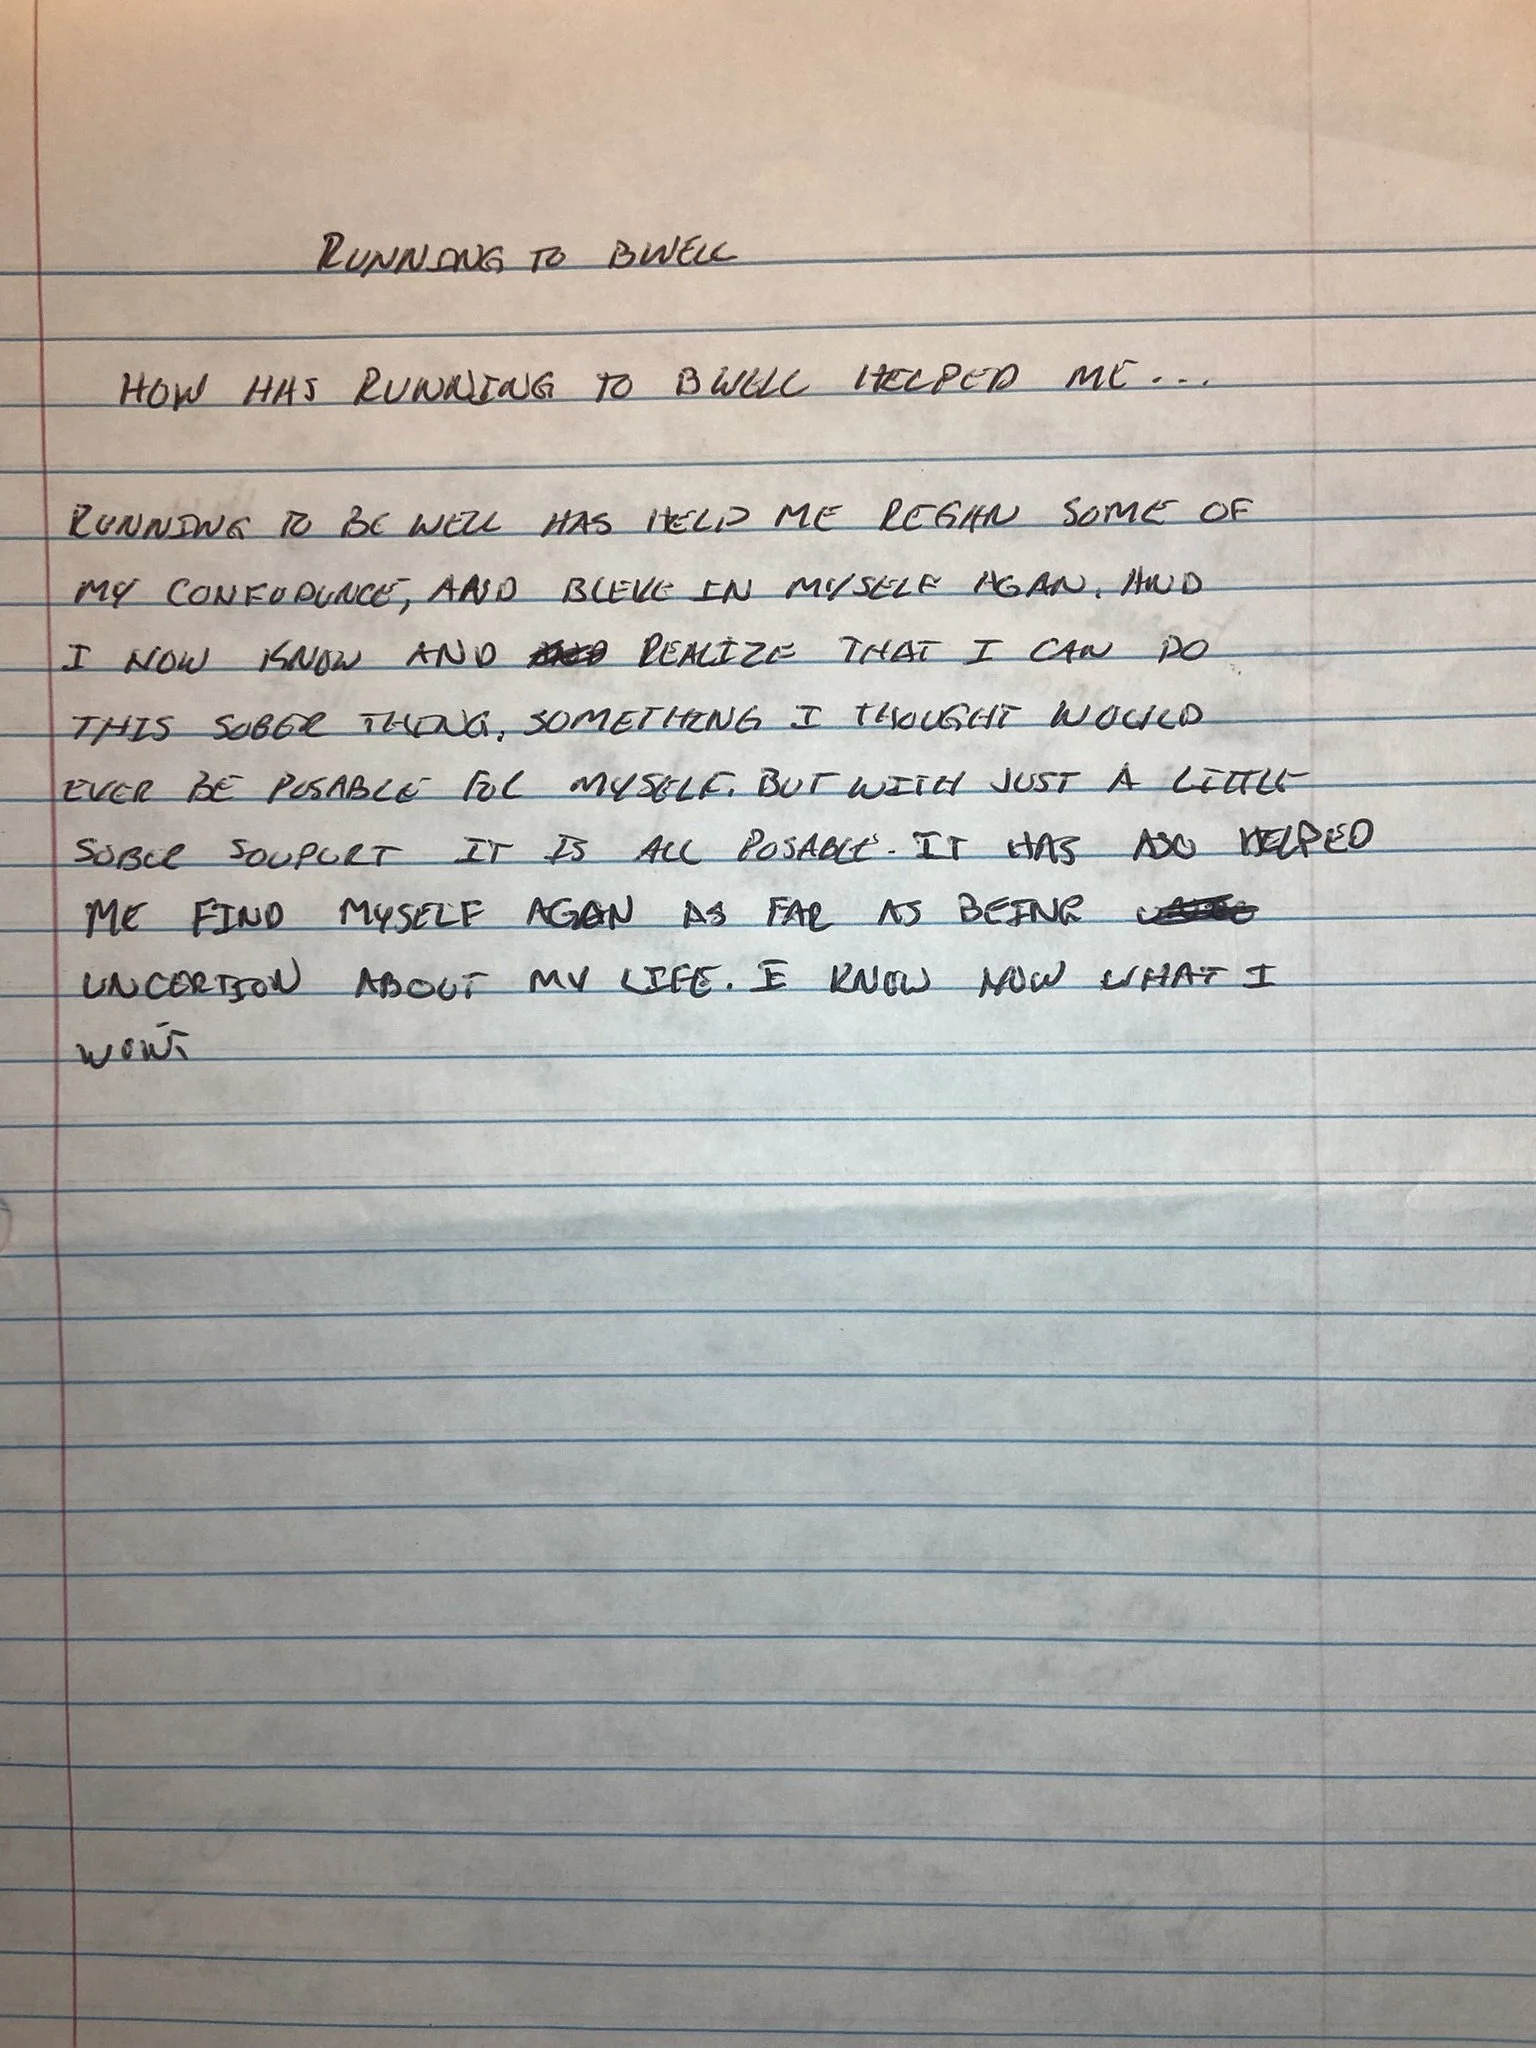 RUNNING TO BWELL
HOW HAS RUNNING TO BWELL HELPED ME...
RUNNING TO BE WELL HAS HELP ME REGAN SOME OF
MY CONFUDUNCE, AND BLEVE IN MYSELF AGAN. AND
I NOW KNOW AND REALIZE THAT I CAN DO
THIS SOBER THING, SOMETHING I THOUGHT WOULD
EVER BE POSABLE FOR MYSELF. BUT WITH JUST A LITTLE
SOBER SOUPORT IT IS ALL POSABLE. IT HAS ALSO HELPED
ME FIND MYSELF AGAN AS FAR AS BEING
UNCERTION ABOUT MY LIFE. I KNOW NOW WHAT I
WONT